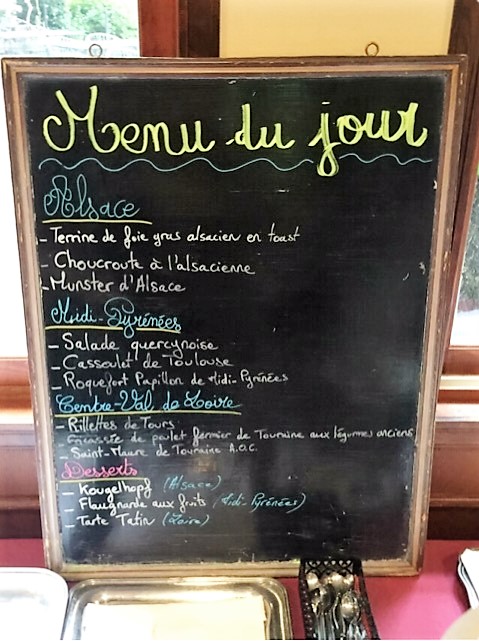 Menu du jour
Alsace
- Terrine de foie gras alsacien en toast
- Choucroute à l'alsacienne
- Munster d'Alsace
Midi-Pyrénées
- Salade quercynoise
- Cassoulet de Toulouse
- Roquefort Papillon de Midi-Pyrénées
Centre-Val de Loire
- Rillettes de Tours
- Fricassée de poulet fermier de Touraine aux légumes anciens
- Saint-Maure de Touraine A.O.C.
Desserts
- Kougelhopf (Alsace)
- Flaugnarde aux fruits (Midi-Pyrénées)
- Tarte Tatin (Loire)